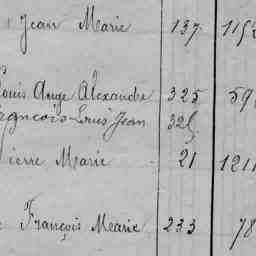 Jean Marie 137
Louis Ange Alexandre 325
François Louis Jean 325
Pierre Marie 21
François Marie 233 78